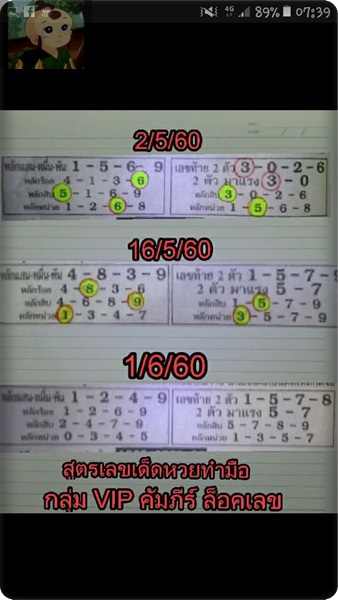 4G 89% 07:39
2/5/60
หลักแสน-หมื่น-พัน 1 - 5 - 6 - 9
หลักร้อย 4 - 1 - 3 - 6
หลักสิบ 5 - 1 - 6 - 9
หลักหน่วย 1 - 2 - 6 - 8
เลขท้าย 2 ตัว 3 - 0 - 2 - 6
2 ตัว มาแรง 3 - 0
หลักสิบ 3 - 0 - 2 - 6
หลักหน่วย 1 - 5 - 6 - 8
16/5/60
หลักแสน-หมื่น-พัน 4 - 8 - 3 - 9
หลักร้อย 4 - 8 - 3 - 6
หลักสิบ 4 - 6 - 8 - 9
หลักหน่วย 1 - 3 - 4 - 7
เลขท้าย 2 ตัว 1 - 5 - 7 - 9
2 ตัว มาแรง 5 - 7
หลักสิบ 1 - 5 - 7 - 9
หลักหน่วย 3 - 5 - 7 - 9
1/6/60
หลักแสน-หมื่น-พัน 1 - 2 - 4 - 9
หลักร้อย 1 - 2 - 6 - 9
หลักสิบ 2 - 4 - 7 - 9
หลักหน่วย 0 - 3 - 4 - 5
เลขท้าย 2 ตัว 1 - 5 - 7 - 8
2 ตัว มาแรง 5 - 7
หลักสิบ 5 - 7 - 8 - 9
หลักหน่วย 1 - 3 - 5 - 7
สูตรเลขเด็ดหวยทำมือ
กลุ่ม VIP คัมภีร์ ล็อคเลข